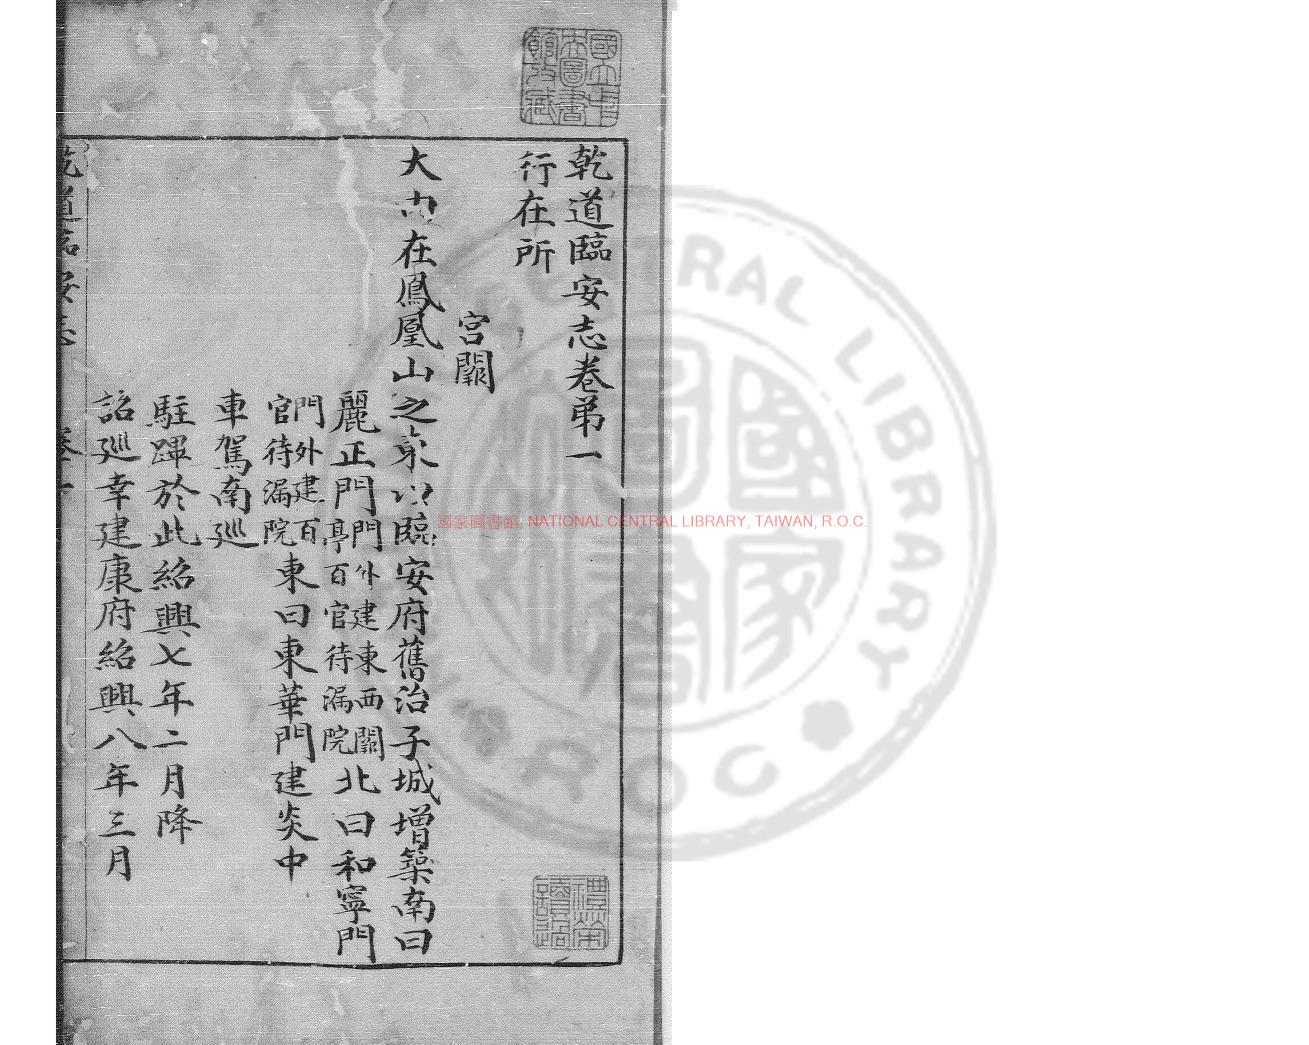 乾道臨安志卷苐一
行在所
宮闕
大內在鳳凰山之東以臨安府舊治子城增築南曰
麗正門門外建東西闕亭百官待漏院北曰和寧門
門外建百官待漏院東曰東華門建炎中
車駕南廵
駐蹕於此紹興七年二月降
詔廵幸建康府紹興八年三月
乾道臨安志 卷一
國立中央圖書館收藏
國家圖書館, NATIONAL CENTRAL LIBRARY, TAIWAN, R.O.C.
CENTRAL LIBRARY
R.O.C.
國家圖書館